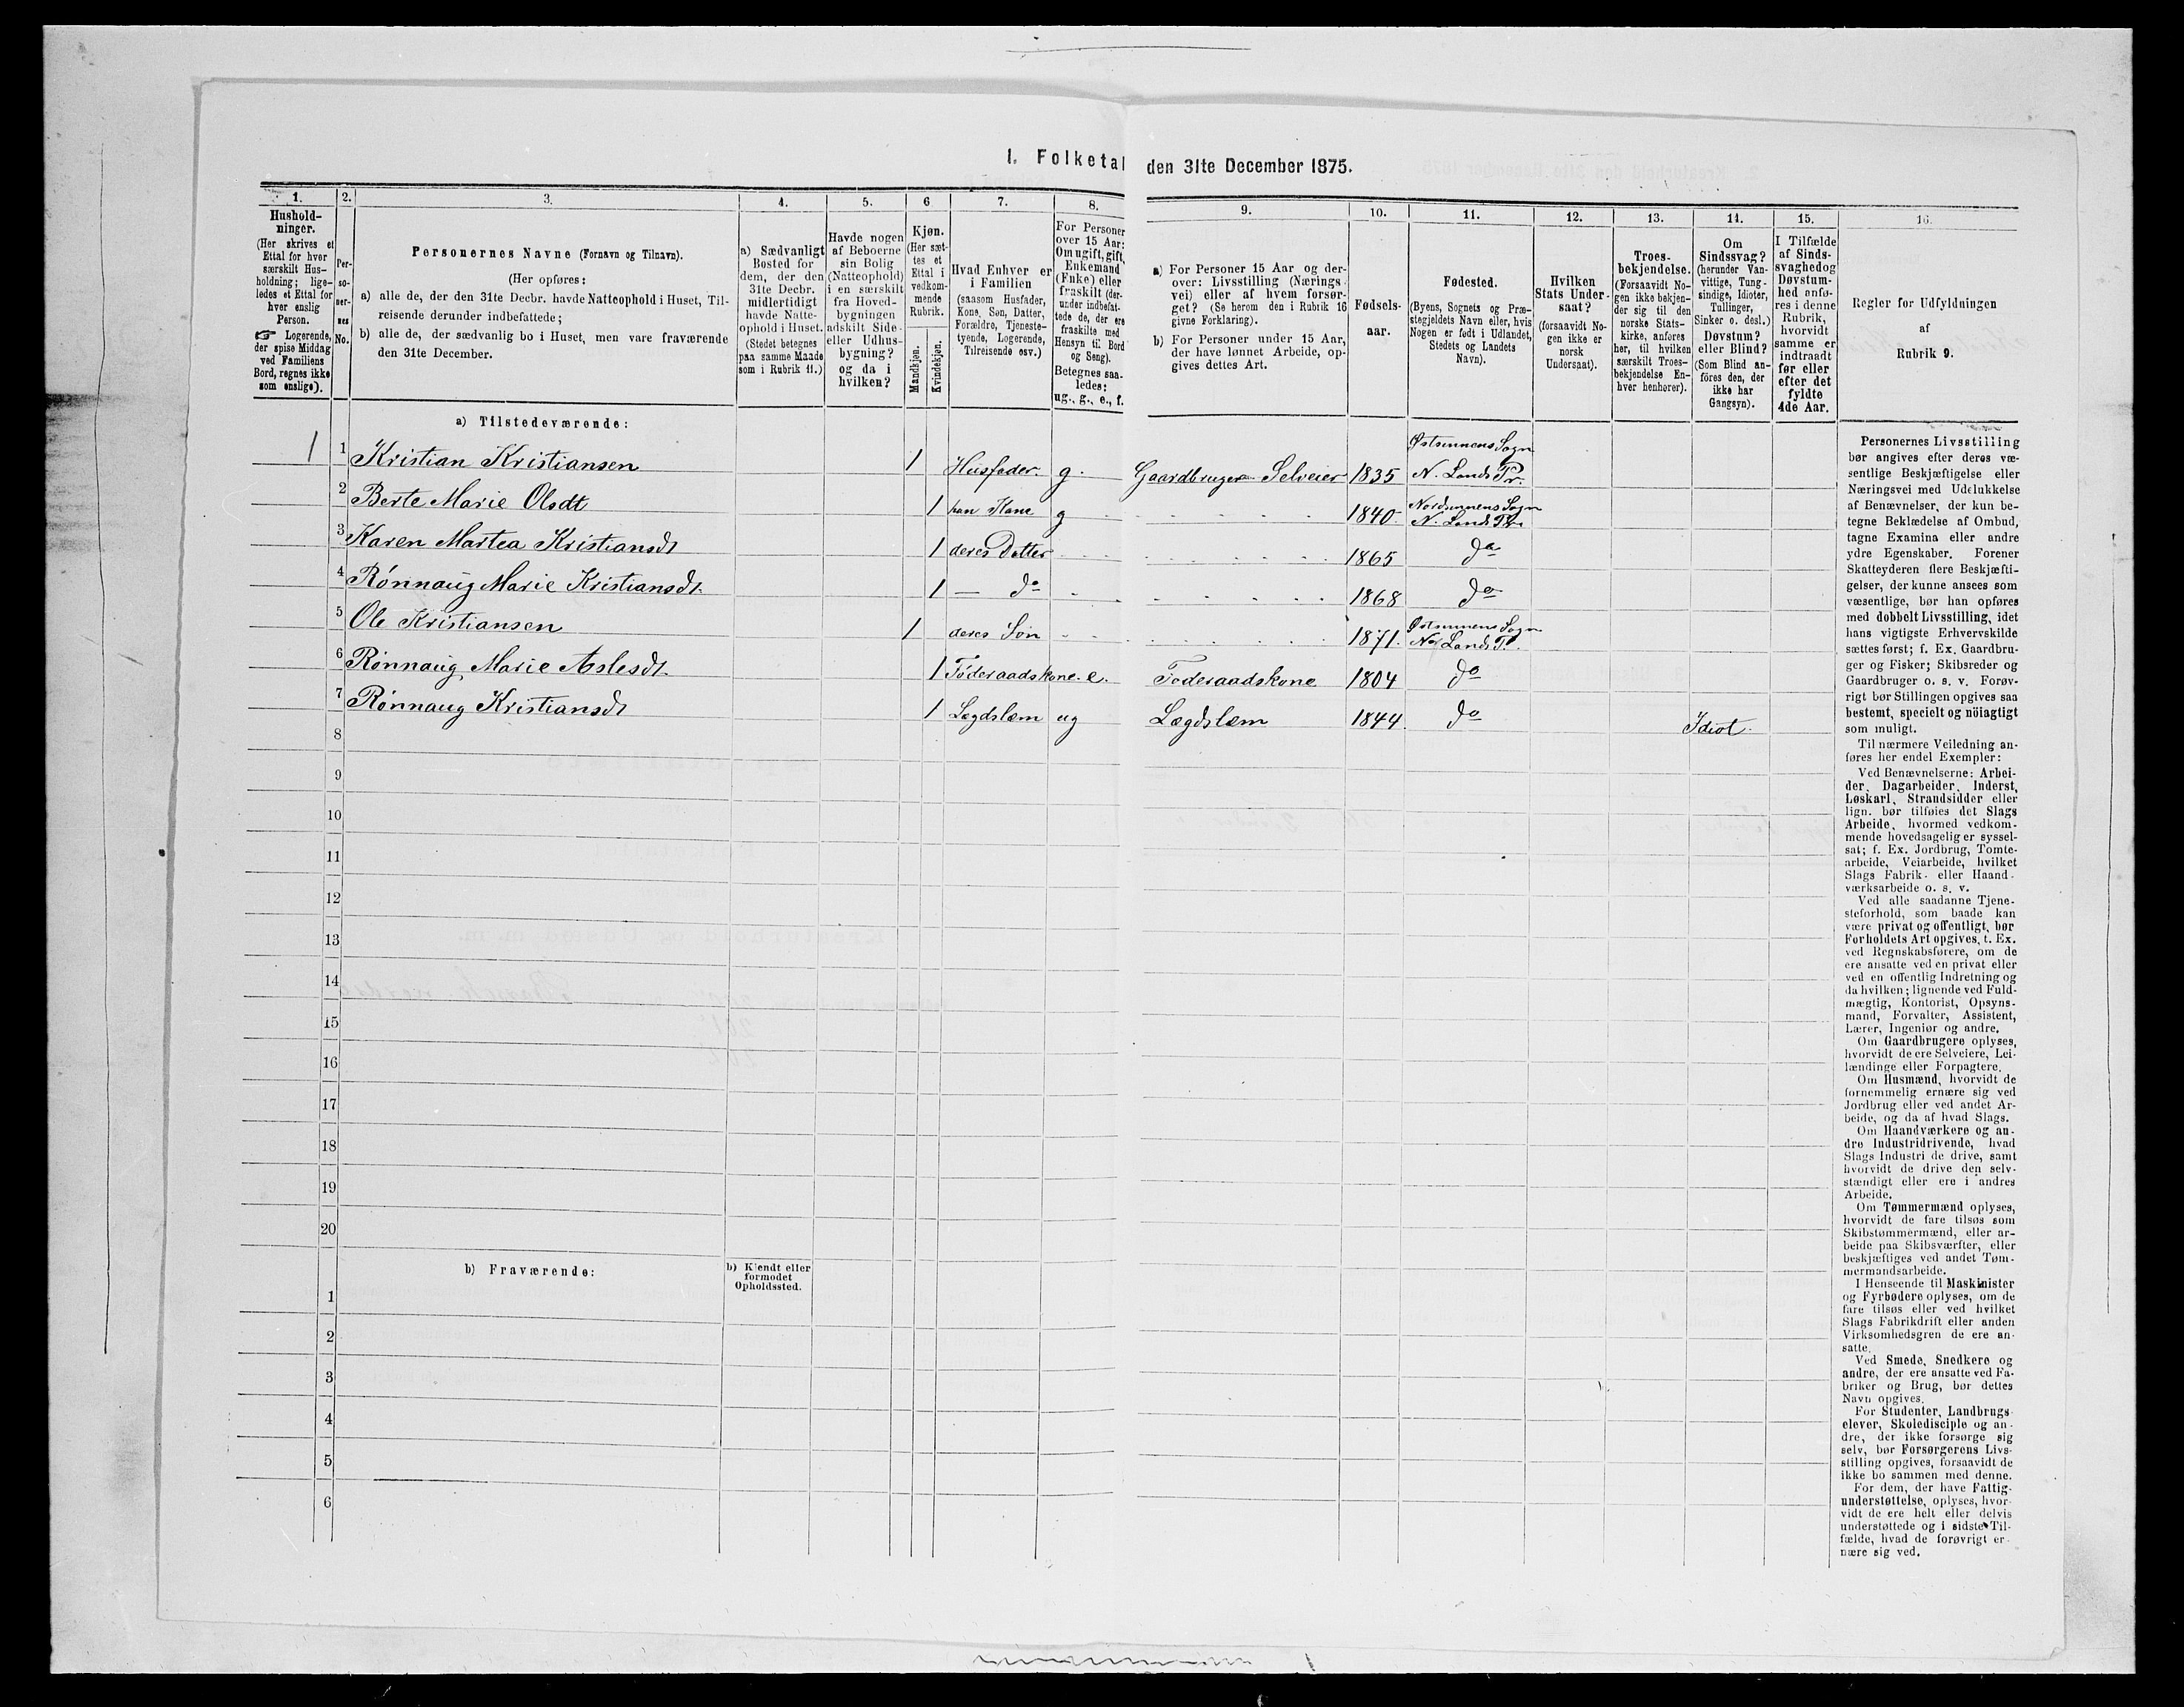 I. Folketal den 31te December 1875.
1.
Hushold-
ninger.
(Her skrives et
Ettal for hver
særskilt Hus-
holdning; lige-
ledes et Ettal for
hver enslig
Person.
☞ Logerende,
der spise Middag
ved Familiens
Bord, regnes ikke
som enslige).
2.
Per-
so-
ner-
nes
No.
3.
Personernes Navne (Fornavn og Tilnavn).
(Her opføres:
a) alle de, der den 31te Decbr. havde Natteophold i Huset, Til-
reisende derunder indbefattede;
b) alle de, der sædvanlig bo i Huset, men vare fraværende
den 31te December.
4.
a) Sædvanligt
Bosted for
dem, der den
31te Decbr.
midlertidigt
havde Natte-
ophold i Huset.
(Stedet betegnes
paa samme Maade
som i Rubrik 11.)
5.
Havde nogen
af Beboerne
sin Bolig
(Natteophold)
i en særskilt
fra Hoved-
bygningen
adskilt Side-
eller Udhus-
bygning?
og da i
hvilken?
6
Kjøn.
(Her sæt-
tes et
Ettal i
vedkom-
mende
Rubrik.
Mandkjøn.
Kvindekjøn.
7.
Hvad Enhver er
i Familien
(saasom Husfader,
Kone, Søn, Datter,
Forældre, Tjeneste-
tyende, Logerende,
Tilreisende osv.)
8.
For Personer
over 15 Aar:
Om ugift, gift,
Enkemand
(Enke) eller
fraskilt (der-
under indbefat-
tede de, der ere
fraskilte med
Hensyn til Bord
og Seng).
Betegnes saa-
ledes:
ug., g., e., f.
9.
a) For Personer 15 Aar og der-
over: Livsstilling (Nærings-
vei) eller af hvem forsør-
get? (Se herom den i Rubrik 16
givne Forklaring).
b) For Personer under 15 Aar,
der have lønnet Arbeide, op-
gives dettes Art.
10.
Fødsels-
aar.
11.
Fødested.
(Byens, Sognets og Præ-
stegjeldets Navn eller, hvis
Nogen er født i Udlandet,
Stedets og Landets
Navn).
12.
Hvilken
Stats Under-
saat?
(forsaavidt No-
gen ikke er
norsk
Undersaat).
13.
Troes-
bekjendelse.
(Forsaavidt No-
gen ikke bekjen-
der sig til den
norske Stats-
kirke, anføres
her, til hvilken
særskilt Troes-
bekjendelse En-
hver henhører).
14.
Om
Sindssvag?
(herunder Van-
vittige, Tung-
sindige, Idioter,
Tullinger,
Sinker o. desl.)
Døvstum?
eller Blind?
(Som Blind an-
føres den, der
ikke har
Gangsyn).
15.
I Tilfælde
af Sinds-
svaghed og
Døvstum-
hed anfø-
res i denne
Rubrik,
hvorvidt
samme er
indtraadt
før eller
efter det
fyldte
4de Aar.
16.
Regler for Udfyldningen
af
Rubrik 9.
a) Tilstedeværende:
1 1 Kristian Kristiansen 1 Husfader. g. Gaardbruger Selveier 1835 Østsinnens Sogn
N. Lands Pr.
2 Berte Marie Olsdt 1 han Kone g 1840. Nordsinnens Sogn
N. Lands Pr
3 Karen Martea Kristiansdt 1 deres Datter 1865 do
4 Rønnaug Marie Kristiansdt. 1 — do 1868 do
5 Ole Kristiansen 1 deres Søn 1871. Østsinnens Sogn
N. Lands P.
6 Rønnaug Marie Aslesdt. 1 Føderaadskone. e. Føderaadskone 1804 do
7 Rønnaug Kristiansdt 1 Lægdslem ug Lægdslem 1844. do Idiot.
8
9
10
11
12
13
14
15
16
17
18
19
20
b) Fraværende:
b) Kjendt eller
formodet
Opholdssted.
1
2
3
4
5
6
Personernes Livsstilling
bør angives efter deres væ-
sentlige Beskjæftigelse eller
Næringsvei med Udelukkelse
af Benævnelser, der kun be-
tegne Beklædelse af Ombud,
tagne Examina eller andre
ydre Egenskaber. Forener
Skatteyderen flere Beskjæfti-
gelser, der kunne ansees som
væsentlige, bør han opføres
med dobbelt Livsstilling, idet
hans vigtigste Erhvervskilde
sættes først; f. Ex. Gaardbru-
ger og Fisker; Skibsreder og
Gaardbruger o. s. v. Forøv-
rigt bør Stillingen opgives saa
bestemt, specielt og nöiagtigt
som muligt.
Til nærmere Veiledning an-
føres her endel Exempler:
Ved Benævnelserne: Arbei-
der, Dagarbeider, Inderst,
Løskarl, Strandsidder eller
lign. bør tilføies det Slags
Arbeide, hvormed vedkom-
mende hovedsagelig er syssel-
sat; f. Ex. Jordbrug, Tomte-
arbeide, Veiarbeide, hvilket
Slags Fabrik- eller Haand-
værksarbeide o. s. v.
Ved alle saadanne Tjene-
steforhold, som baade kan
være privat og offentligt, bør
Forholdets Art opgives, t. Ex.
ved Regnskabsførere, om de
ere ansatte ved en privat eller
ved en offentlig Indretning og
da hvilken; lignende ved Fuld-
mægtig, Kontorist, Opsyns-
mand, Forvalter, Assistent,
Lærer, Ingeniør og andre.
Om Gaardbrugere oplyses,
hvorvidt de ere Selveiere, Lei-
lændinge eller Forpagtere.
Om Husmænd, hvorvidt de
fornemmelig ernære sig ved
Jordbrug eller ved andet Ar-
beide, og da af hvad Slags.
Om Haandværkere og an-
dre Industridrivende, hvad
Slags Industri de drive, samt
hvorvidt de drive den selv-
stændigt eller ere i andres
Arbeide.
Om Tømmermænd oplyses,
hvorvidt de fare tilsøs som
Skibstømmermænd, eller ar-
beide paa Skibsværfter, eller
beskjæftiges ved andet Tøm-
mermandsarbeide.
I Henseende til Maskinister
og Fyrbødere oplyses, om de
fare tilsøs eller ved hvilket
Slags Fabrikdrift eller anden
Virksomhedsgren de ere an-
satte.
Ved Smede, Snedkere og
andre, der ere ansatte ved Fa-
briker og Brug, bør dettes
Navn opgives.
For Studenter, Landbrugs-
elever, Skoledisciple og an-
dre, der ikke forsørge sig
selv, bør Forsørgerens Livs-
stilling opgives, forsaavidt de
ikke bo sammen med denne.
For dem, der have Fattig-
understøttelse, oplyses, hvor-
vidt de ere helt eller delvis
understøttede og i sidste Til-
fælde, hvad de forøvrigt er-
nære sig ved.